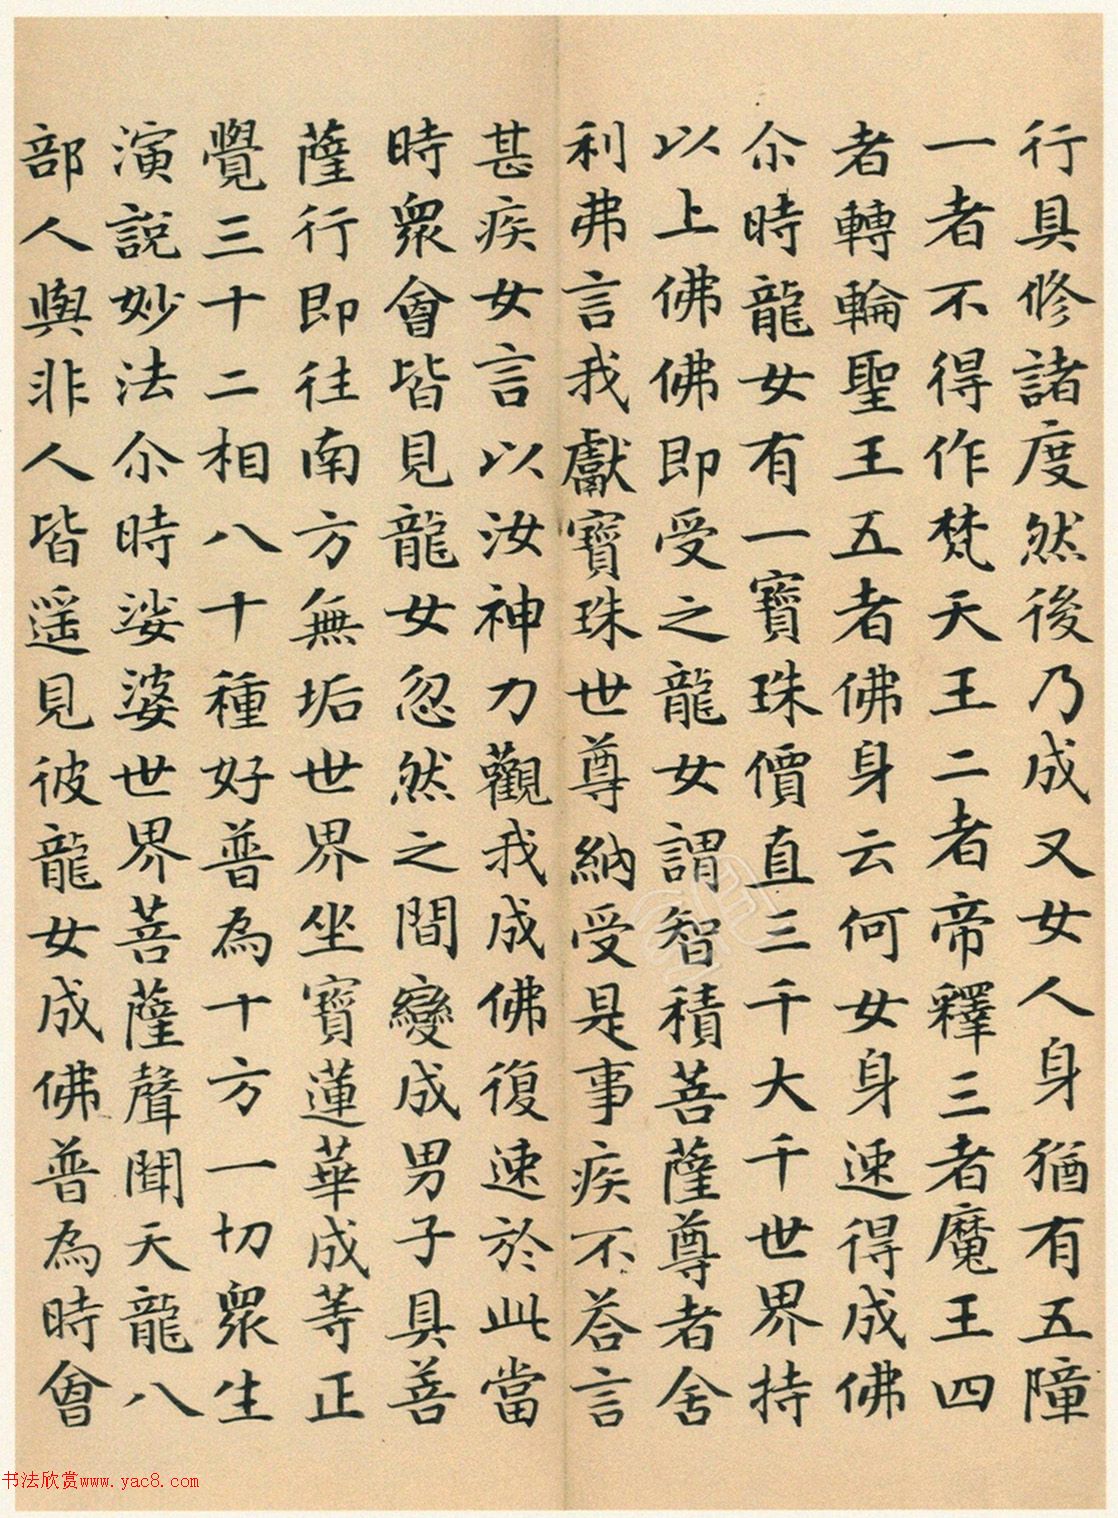 行具修諸度然後乃成又女人身猶有五障
一者不得作梵天王二者帝釋三者魔王四
者轉輪聖王五者佛身云何女身速得成佛
尒時龍女有一寶珠價直三千大千世界持
以上佛佛即受之龍女謂智積菩薩尊者舍
利弗言我獻寶珠世尊納受是事疾不答言
甚疾女言以汝神力觀我成佛復速於此當
時眾會皆見龍女忽然之間變成男子具善
薩行即往南方無垢世界坐寶蓮華成等正
覺三十二相八十種好普為十方一切眾生
演說妙法尒時娑婆世界菩薩聲聞天龍八
部人與非人皆遥見彼龍女成佛普為時會
书法欣赏www.yac8.com